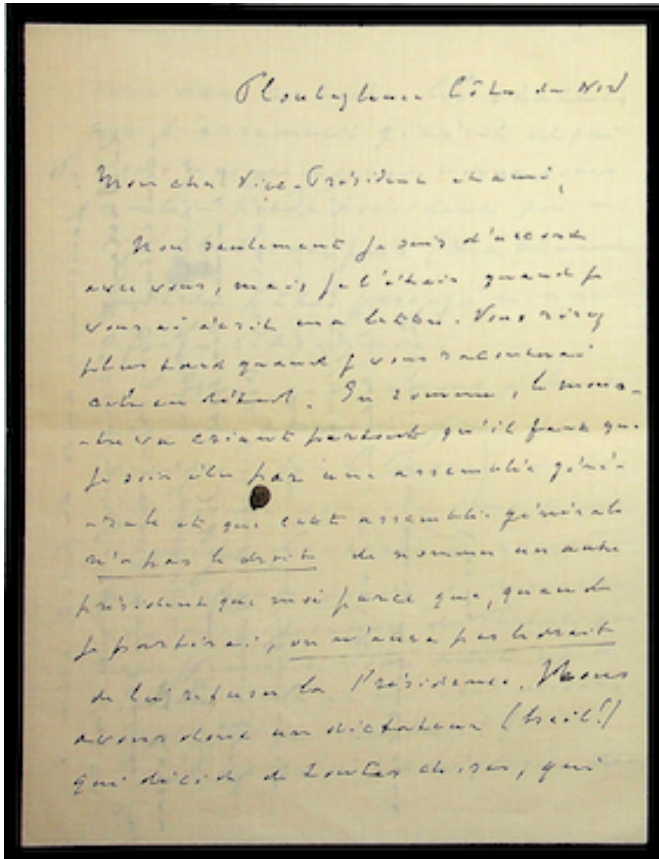 Ploubazlanec Côtes du Nord
Mon cher Vice-Président et ami,
Non seulement je suis d'accord
avec vous, mais je l'étais quand je
vous ai écrit ma lettre. Vous rirez
plus tard quand je vous raconterai
cela en détail. En somme, le mons-
-tre va criant partout qu'il faut que
je sois élu par une assemblée géné-
-rale et que cette assemblée générale
n'a pas le droit de nommer un autre
président que moi parce que, quand
je partirai, on n'aura pas le droit
de lui refuser la Présidence. Nous
avons donc un dictateur (heil!)
qui décide de toutes choses, qui